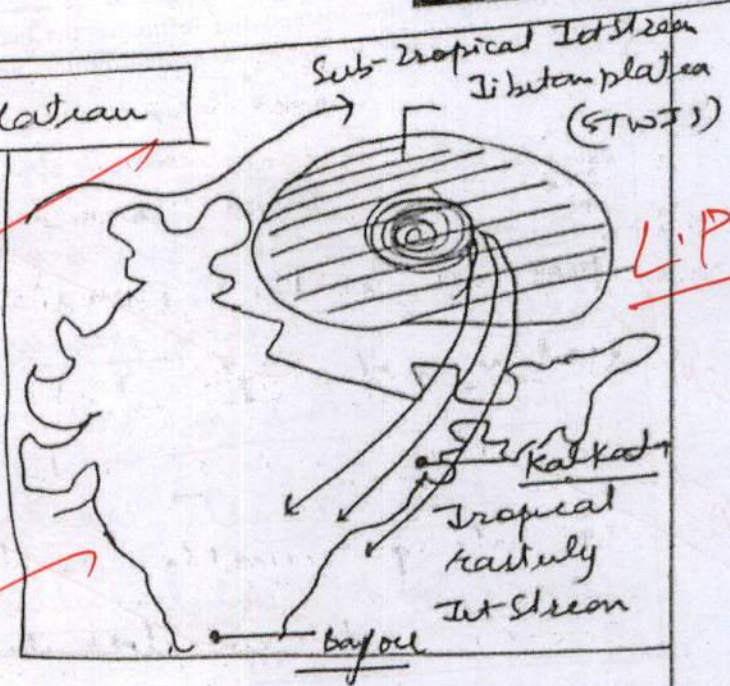 lateau
Sub-Tropical Jet Stream
Tibetan platea
(STWJS)
L.P
Kolkata
Tropical
Easterly
Jet Stream
Bay of